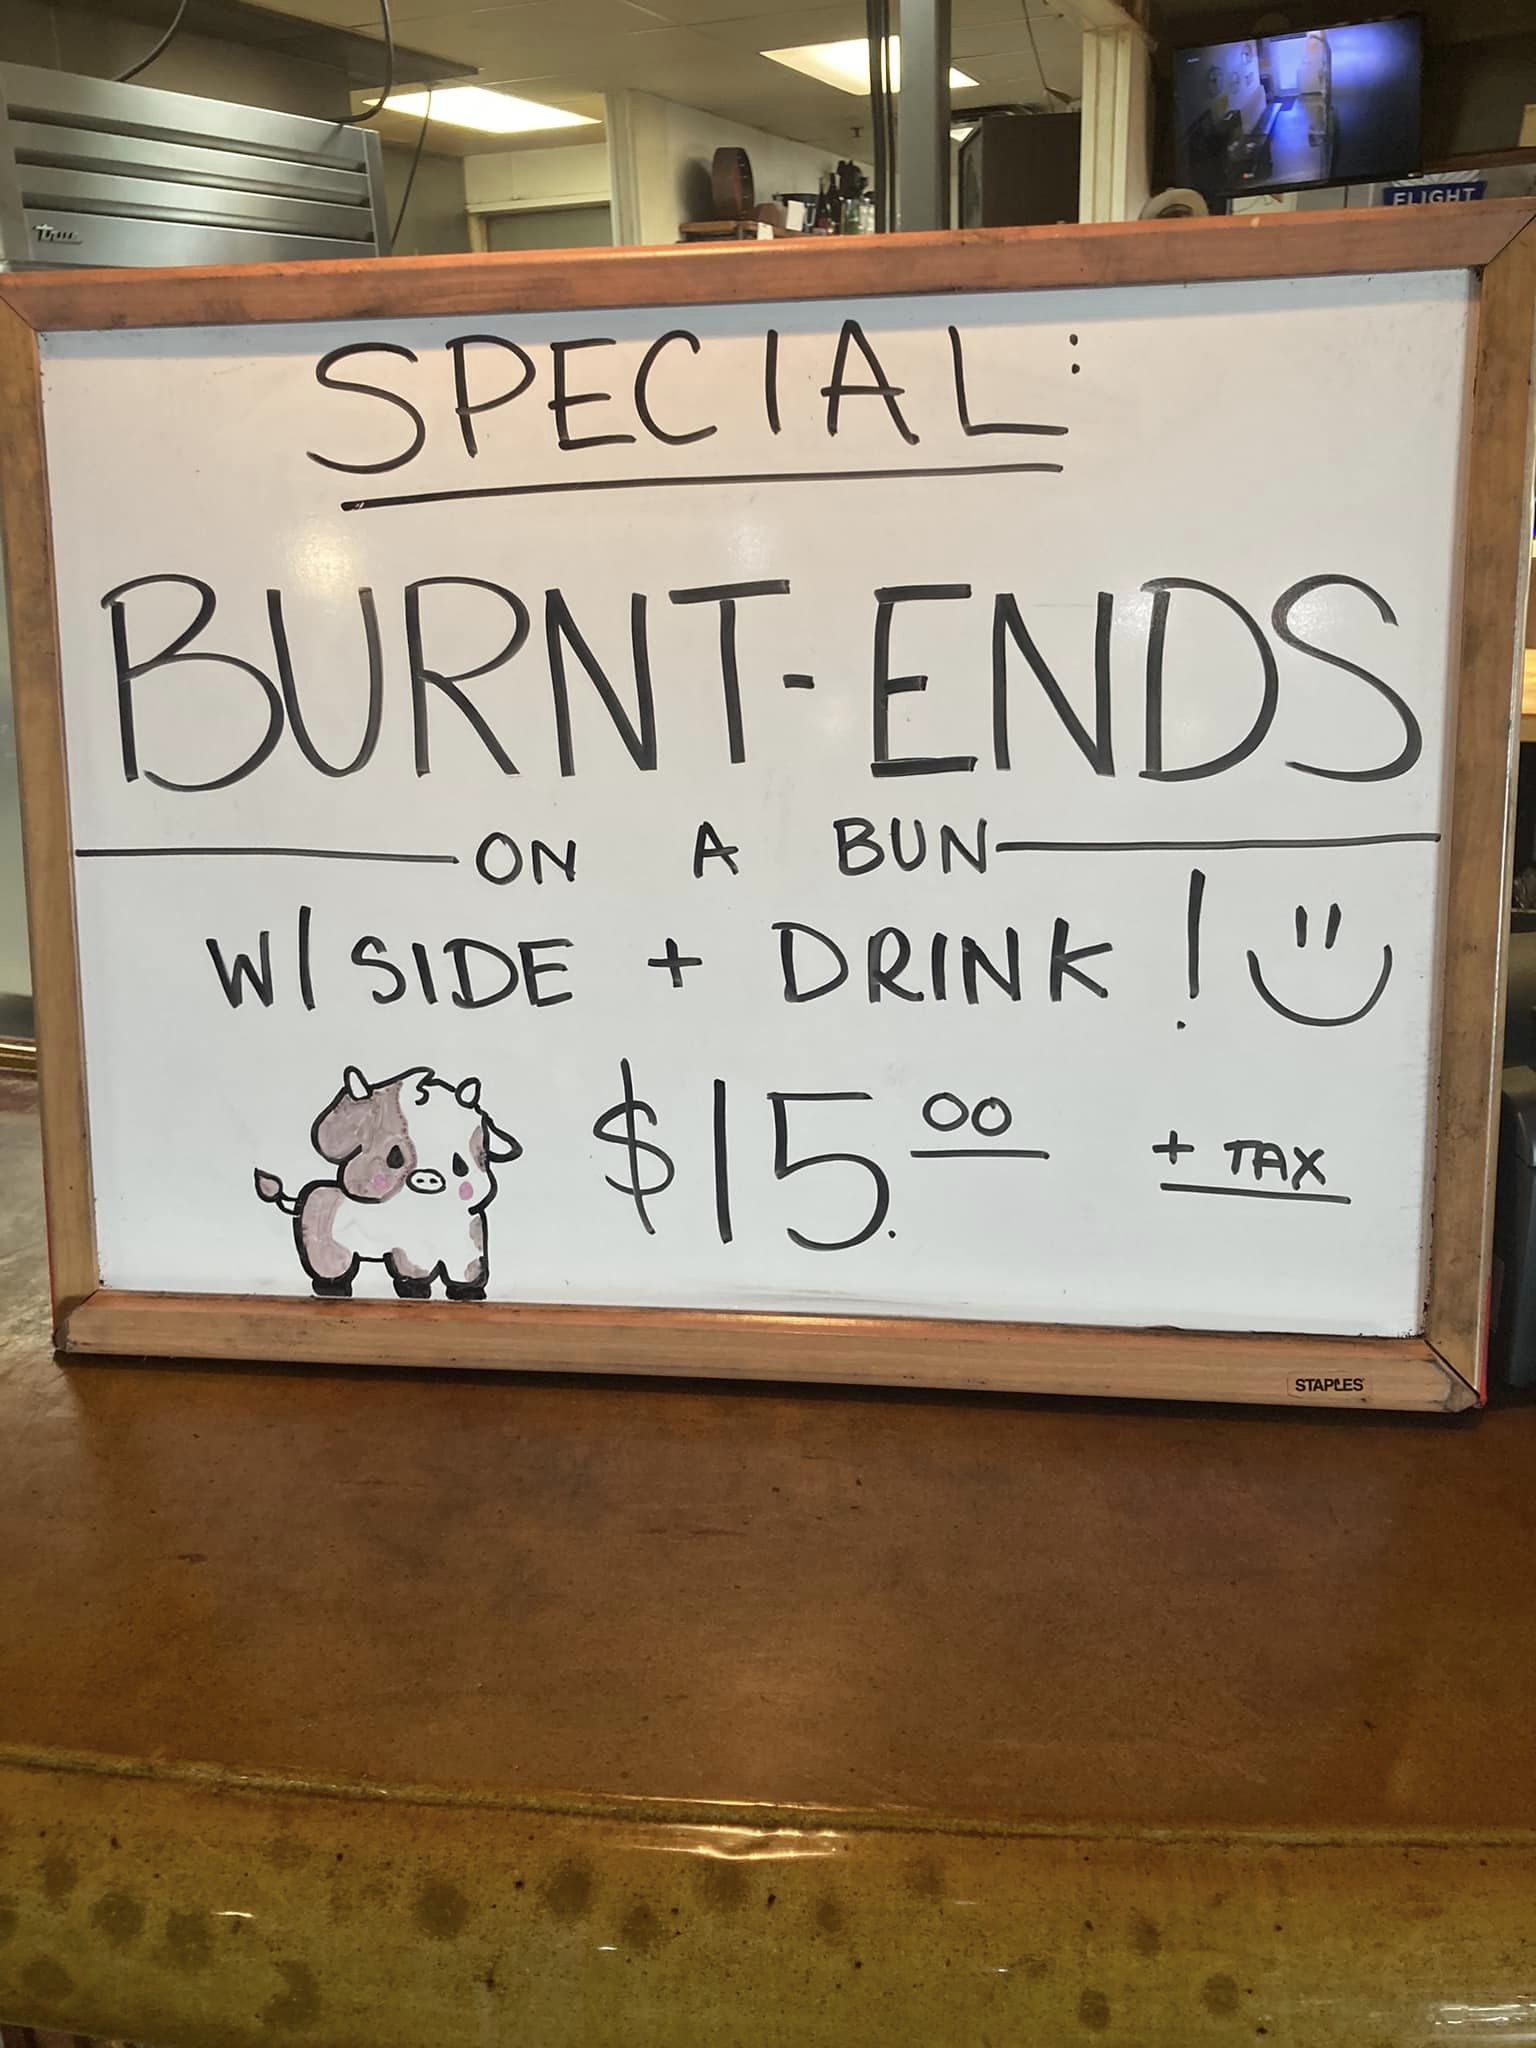 True
FLIGHT
SPECIAL:
BURNT-ENDS
ON A BUN
W/ SIDE + DRINK!
$15.00 + TAX
STAPLES